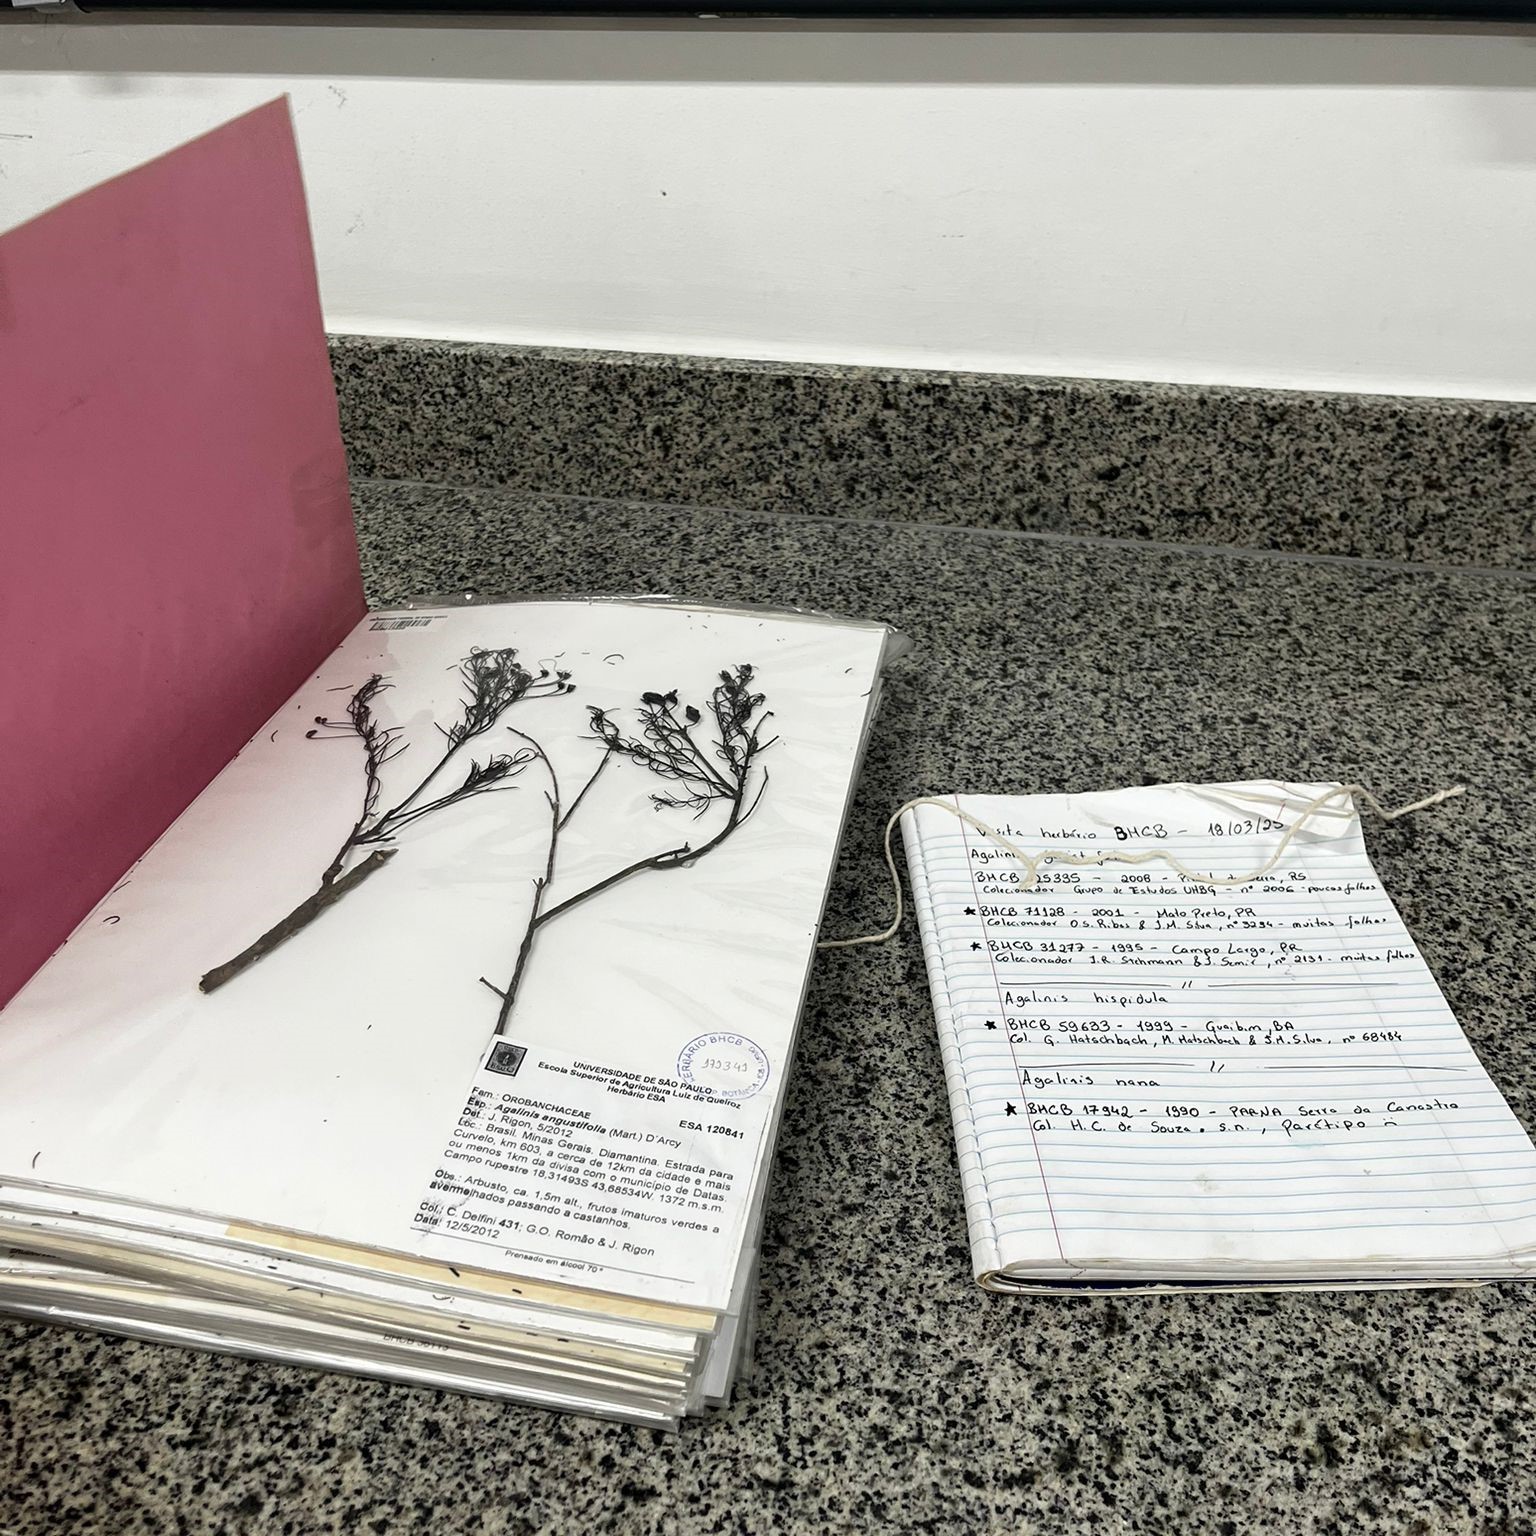 UNIVERSIDADE DE SÃO PAULO
Escola Superior de Agricultura Luiz de Queiroz
Herbário ESA
HERBÁRIO BHCB
179341
BOTÂNICA
ESA 120841
Fam.: OROBANCHACEAE
Esp.: Agalinis angustifolia (Mart.) D´Arcy
Det.: J. Rigon, 5/2012
Loc.: Brasil. Minas Gerais. Diamantina. Estrada para
Curvelo, km 603, a cerca de 12km da cidade e mais
ou menos 1km da divisa com o município de Datas.
Campo rupestre 18,31493S 43,68534W. 1372 m.s.m.
Obs.: Arbusto, ca. 1,5m alt., frutos imaturos verdes a
avermelhados passando a castanhos.
Col.: C. Delfini 431; G.O. Romão & J. Rigon
Data: 12/5/2012
Prensado em álcool 70°
Visita herbário BHCB - 18/03/25
Agalinis
BHCB - 2008 - RS
Colecionador Grupo de Estudos UHBG - nº 2006 - poucas folhas
★ BHCB 71128 - 2001 - Mato Preto, PR
Colecionador O.S. Ribas & J.M. Silva, nº 3294 - muitas folhas
★ BHCB 31277 - 1995 - Campo Largo, PR
Colecionador J.R. Stehmann & J. Semir, nº 2131 - muitas folhas
//
Agalinis hispidula
★ BHCB 59633 - 1999 - Guaibim, BA
Col. G. Hatschbach, M. Hatschbach & J.M. Silva, nº 68484
//
Agalinis nana
★ BHCB 17942 - 1990 - PARNA Serra da Canastra
Col. H.C. de Souza. s.n., parátipo